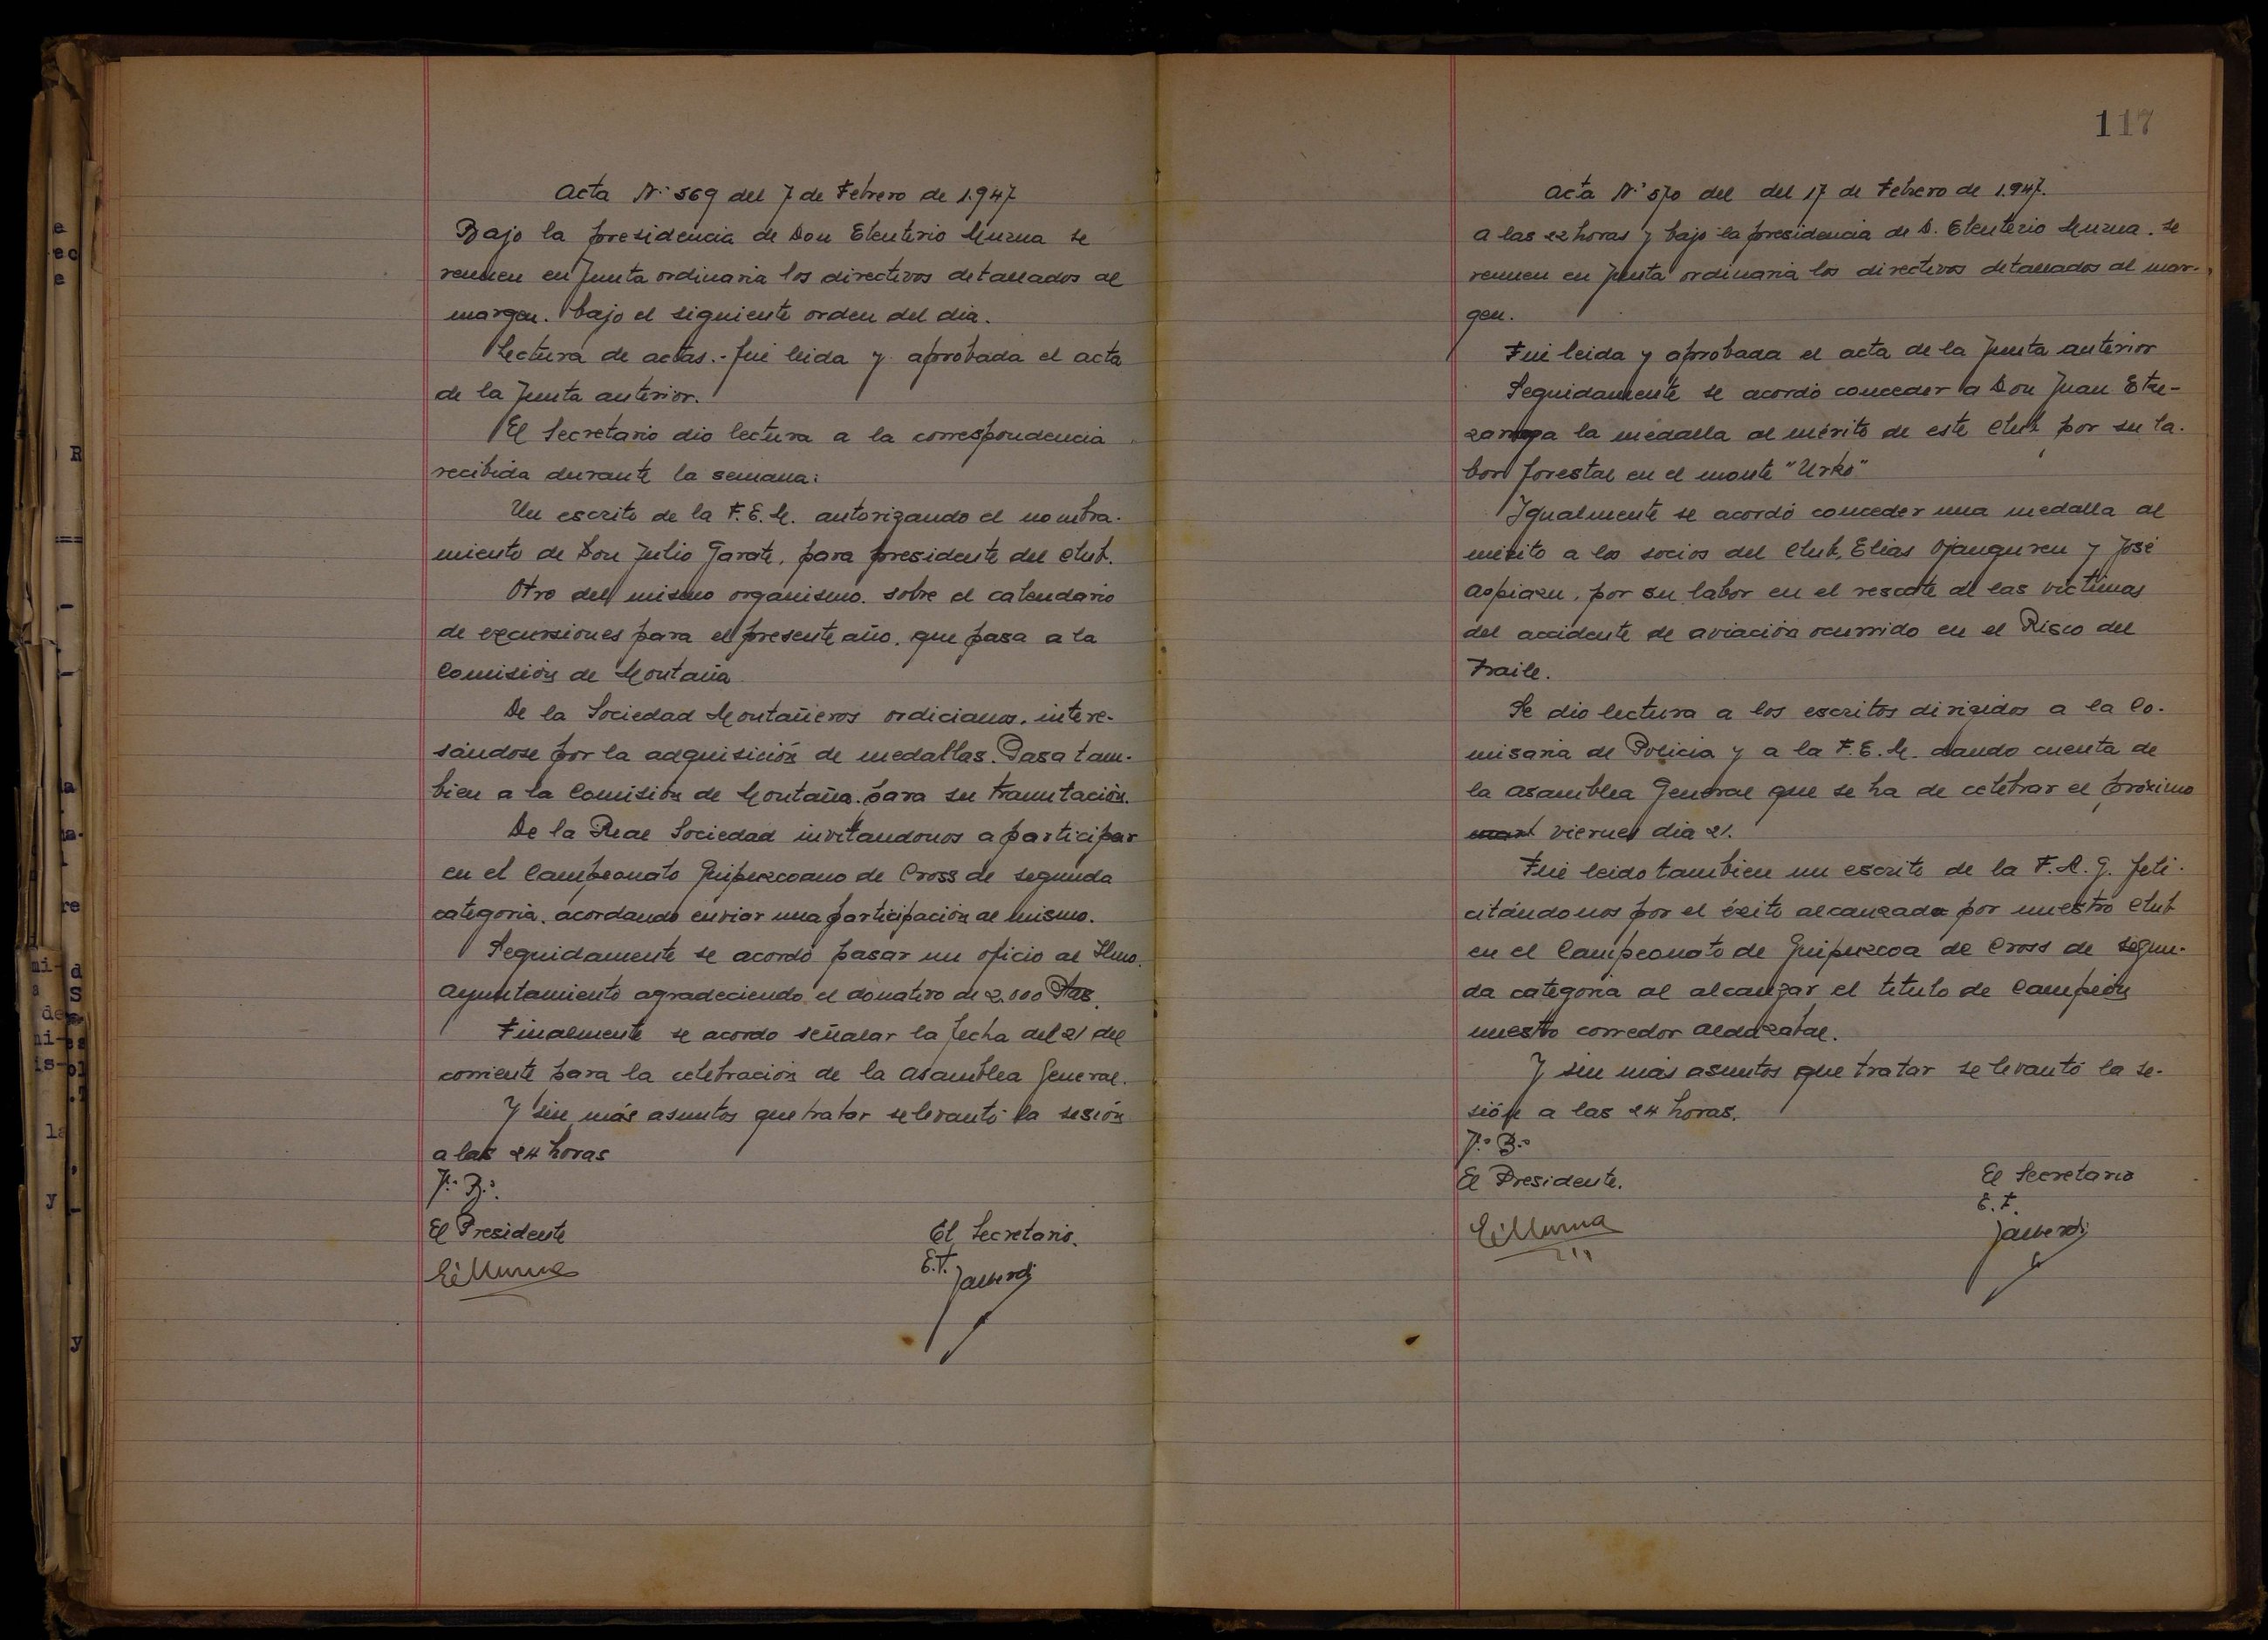 Acta Nº 569 del 7 de Febrero de 1.947
Bajo la presidencia de Don Eleuterio Muzua se
reunen en Junta ordinaria los directivos detallados al
margen. bajo el siguiente orden del dia.
Lectura de actas.- fué leida y aprobada el acta
de la Junta anterior.
El Secretario dio lectura a la correspondencia
recibida durante la semana:
Un escrito de la F.E.M. autorizando el nombra-
miento de Don Julio Garate, para presidente del Club.
Otro del mismo organismo. sobre el calendario
de excursiones para el presente año. que pasa a la
Comisión de Montaña
De la Sociedad Montañeros ordicianos. intere-
sándose por la adquisición de medallas. Pasa tam-
bien a la Comisión de Montaña. para su tramitación.
De la Real Sociedad invitandonos a participar
en el Campeonato Guipuzcoano de Cross de segunda
categoria. acordando enviar una participación al mismo.
Seguidamente se acordó pasar un oficio al Ilmo.
Ayuntamiento agradeciendo el donativo de 2.000 Ptas.
Finalmente se acordo señalar la fecha del 21 del
corriente para la celebración de la Asamblea General.
Y sin más asuntos que tratar se levantó la sesión
a las 24 horas
Vº Bº
El Presidente
El Secretario.
117
Acta Nº 570 del del 17 de Febrero de 1.947.
A las 22 horas y bajo la presidencia de D. Eleuterio Muzua. se
reunen en Junta ordinaria los directivos detallados al mar-
gen.
Fué leida y aprobada el acta de la Junta anterior
Seguidamente se acordó conceder a Don Juan Etxe-
zarraga la medalla al mérito de este Club por su la-
bor forestal en el monte "Urko"
Igualmente se acordó conceder una medalla al
mérito a los socios del Club, Elias Ojanguren y José
Aspiazu, por su labor en el rescate de las victimas
del accidente de aviación ocurrido en el Risco del
Fraile.
Se dio lectura a los escritos dirigidos a la Co-
misaria de Policia y a la F.E.M. dando cuenta de
la Asamblea General que se ha de celebrar el próximo
viernes dia 21.
Fué leido tambien un escrito de la F.A.G. feli-
citándonos por el éxito alcanzado por nuestro Club
en el Campeonato de Guipuzcoa de Cross de segun-
da categoria al alcanzar el titulo de Campeón
nuestro corredor Aldazabal.
Y sin más asuntos que tratar se levantó la se-
sión a las 24 horas.
Vº Bº
El Presidente.
El Secretario